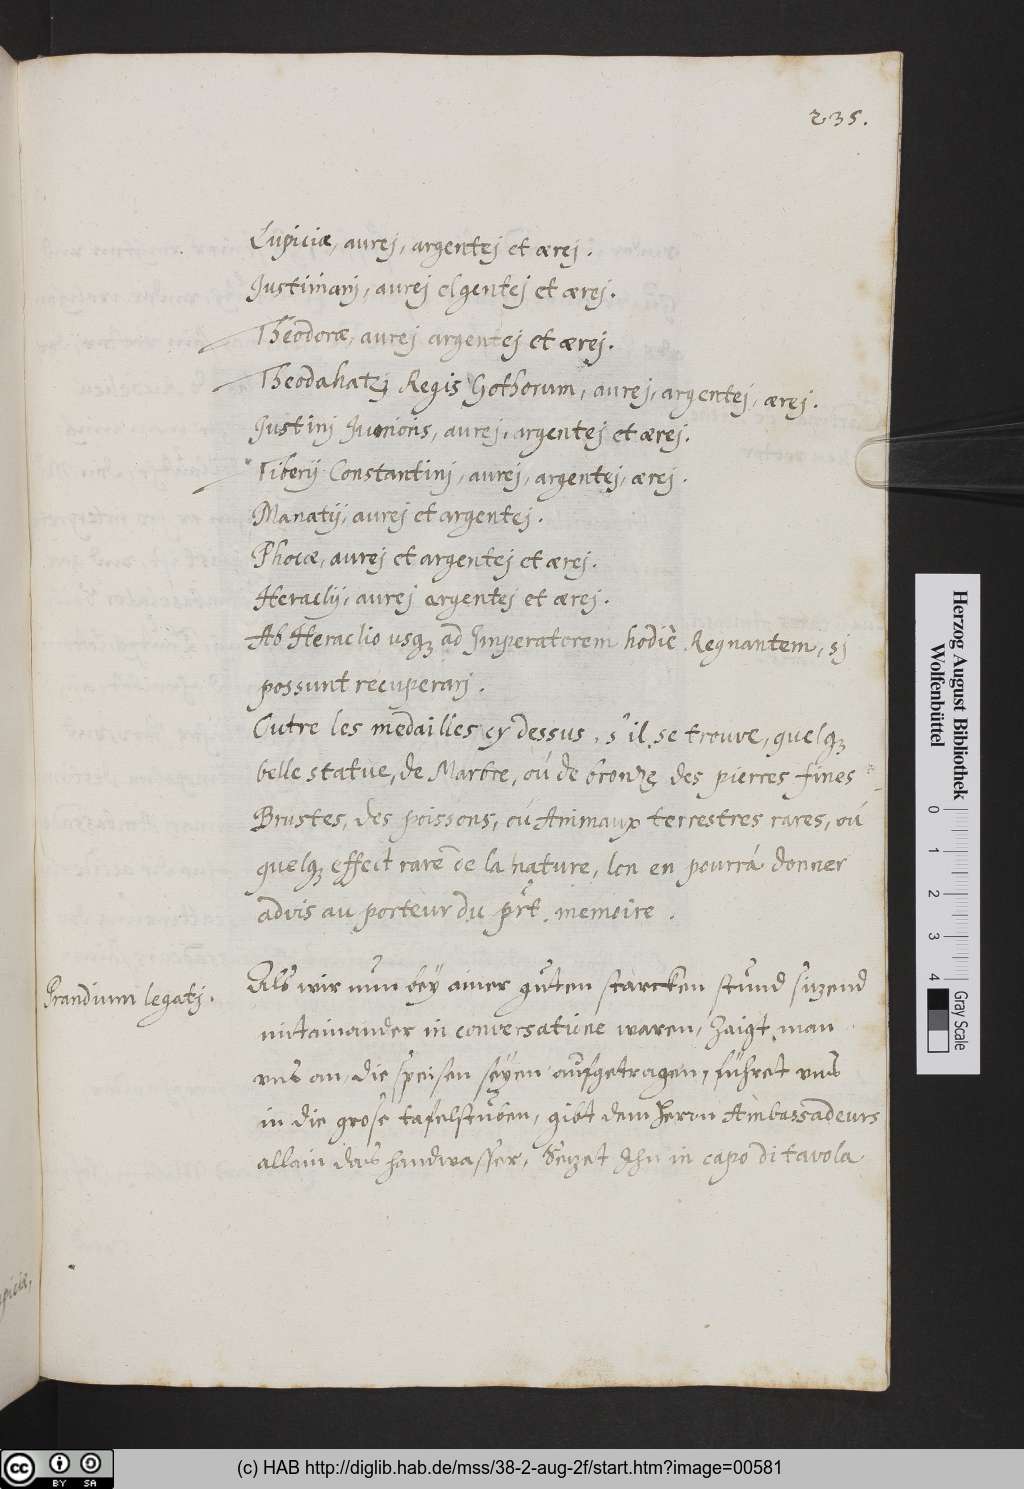 235.
Lupiciæ, aurej, argentej et ærej.
Justiniani, aurej elgentej et ærej.
Theodoræ, aurej argentej et ærej.
Theodahatj Regis Gothorum, aurej, argentej, ærej.
Justinj Junioris, aurej, argentej et ærej.
Tiberij Constantinj, aurej, argentej, ærej.
Manatij, aurej et argentej.
Phocæ, aurej et argentej et ærej.
Heraclij, aurej argentej et ærej.
Ab Heraclio usq; ad Imperatorem hodiè Regnantem, sj
possunt recuperarj.
Outre les medailles cy dessus, s'il se trouve, quelq;
belle statue, de Marbre, oú de bronze des pierres fines
Brustes, des poissons, oú Animaux terrestres rares, oú
quelq; effect rare de la nature, lon en pourrá donner
advis au porteur du prt. memoire.
Prandium legatj.
Als wir nun bey ainer guten starcken stund sitzend
mitainander in conversatione waren, Zaigt man
vns an, die speisen seyen aufgetragen, führet vns
in die grose tafelstuben, gibt dem Herrn Ambassadeurs
allain das handwasser, Setzet Ihn in capo di tavola
Herzog August Bibliothek
Wolfenbüttel
0 1 2 3 4
Gray Scale
(c) HAB http://diglib.hab.de/mss/38-2-aug-2f/start.htm?image=00581
cc BY SA